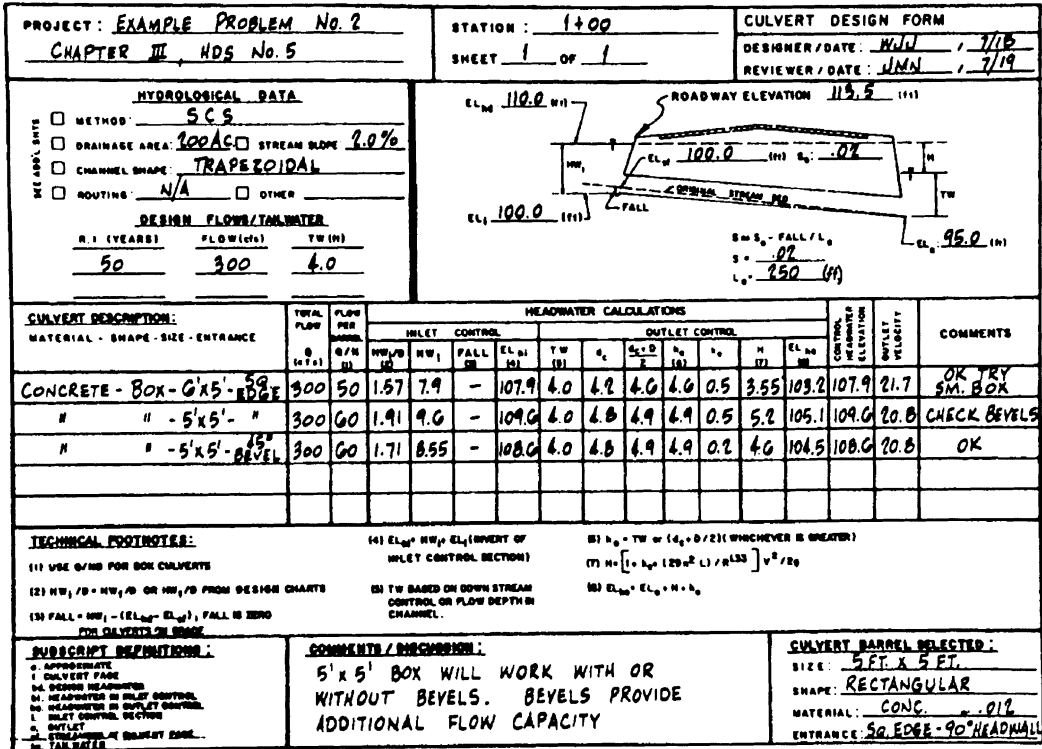 PROJECT: EXAMPLE PROBLEM No. 2
CHAPTER III, HDS No. 5
STATION: 1+00
SHEET 1 OF 1
CULVERT DESIGN FORM
DESIGNER/DATE: WJJ, 7/18
REVIEWER/DATE: JMN, 7/19
HYDROLOGICAL DATA
SEE ADD'L SHTS
METHOD: SCS
DRAINAGE AREA: 200 AC. STREAM SLOPE 2.0%
CHANNEL SHAPE: TRAPEZOIDAL
ROUTING: N/A OTHER
DESIGN FLOWS/TAILWATER
R.I. (YEARS) FLOW(cfs) TW (ft)
50 300 4.0
ELhd 110.0 (ft)
ROADWAY ELEVATION 113.5 (ft)
ELsf 100.0 (ft) So: .02
H
HWi
TW
ORIGINAL STREAM BED
FALL
ELi 100.0 (ft)
ELo: 95.0 (ft)
S ≈ So - FALL / La
S = .02
La = 250 (ft)
CULVERT DESCRIPTION:
MATERIAL - SHAPE - SIZE - ENTRANCE
TOTAL FLOW Q (cfs)
FLOW PER BARREL Q/N (1)
HEADWATER CALCULATIONS
INLET CONTROL
OUTLET CONTROL
HWi/D (2) HWi FALL (3) ELhi (4) TW (5) dc dc+D/2 ho (6) ke H (7) ELho (8)
CONTROL HEADWATER ELEVATION
OUTLET VELOCITY
COMMENTS
CONCRETE - BOX - 6'x5' - SQ EDGE 300 50 1.57 7.9 - 107.9 4.0 4.2 4.6 4.6 0.5 3.55 103.2 107.9 21.7 OK TRY SM. BOX
" " - 5'x5' - " 300 60 1.91 9.6 - 109.6 4.0 4.8 4.9 4.9 0.5 5.2 105.1 109.6 20.8 CHECK BEVELS
" " - 5'x5' - 45° BEVEL 300 60 1.71 8.55 - 108.6 4.0 4.8 4.9 4.9 0.2 4.6 104.5 108.6 20.8 OK
TECHNICAL FOOTNOTES:
(1) USE Q/NB FOR BOX CULVERTS
(2) HWi/D = HWi/D OR HWi/D FROM DESIGN CHARTS
(3) FALL = HWi - (ELhd - ELsf); FALL IS ZERO
FOR CULVERTS ON GRADE
(4) ELhi = HWi + ELi (INVERT OF
INLET CONTROL SECTION)
(5) TW BASED ON DOWN STREAM
CONTROL OR FLOW DEPTH IN
CHANNEL.
(6) ho = TW or (dc+D/2) (WHICHEVER IS GREATER)
(7) H = [1 + ke + (29n² L) / R1.33] V²/2g
(8) ELho = ELo + H + ho
SUBSCRIPT DEFINITIONS:
a. APPROXIMATE
f. CULVERT FACE
hd. DESIGN HEADWATER
hi. HEADWATER IN INLET CONTROL
ho. HEADWATER IN OUTLET CONTROL
i. INLET CONTROL SECTION
o. OUTLET
sf. STREAMBED AT CULVERT FACE
tw. TAIL WATER
COMMENTS / DISCUSSION:
5' x 5' BOX WILL WORK WITH OR
WITHOUT BEVELS. BEVELS PROVIDE
ADDITIONAL FLOW CAPACITY
CULVERT BARREL SELECTED:
SIZE: 5 FT. X 5 FT.
SHAPE: RECTANGULAR
MATERIAL: CONC. n .012
ENTRANCE: SQ. EDGE - 90° HEADWALL